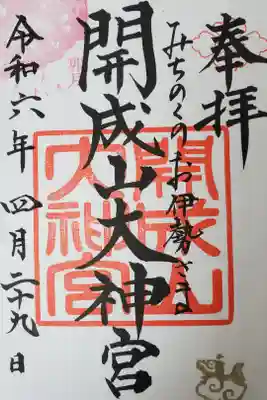 奉拝
みちのくのお伊勢さま
開成山大神宮
開成山大神宮
令和六年 四月二十九日